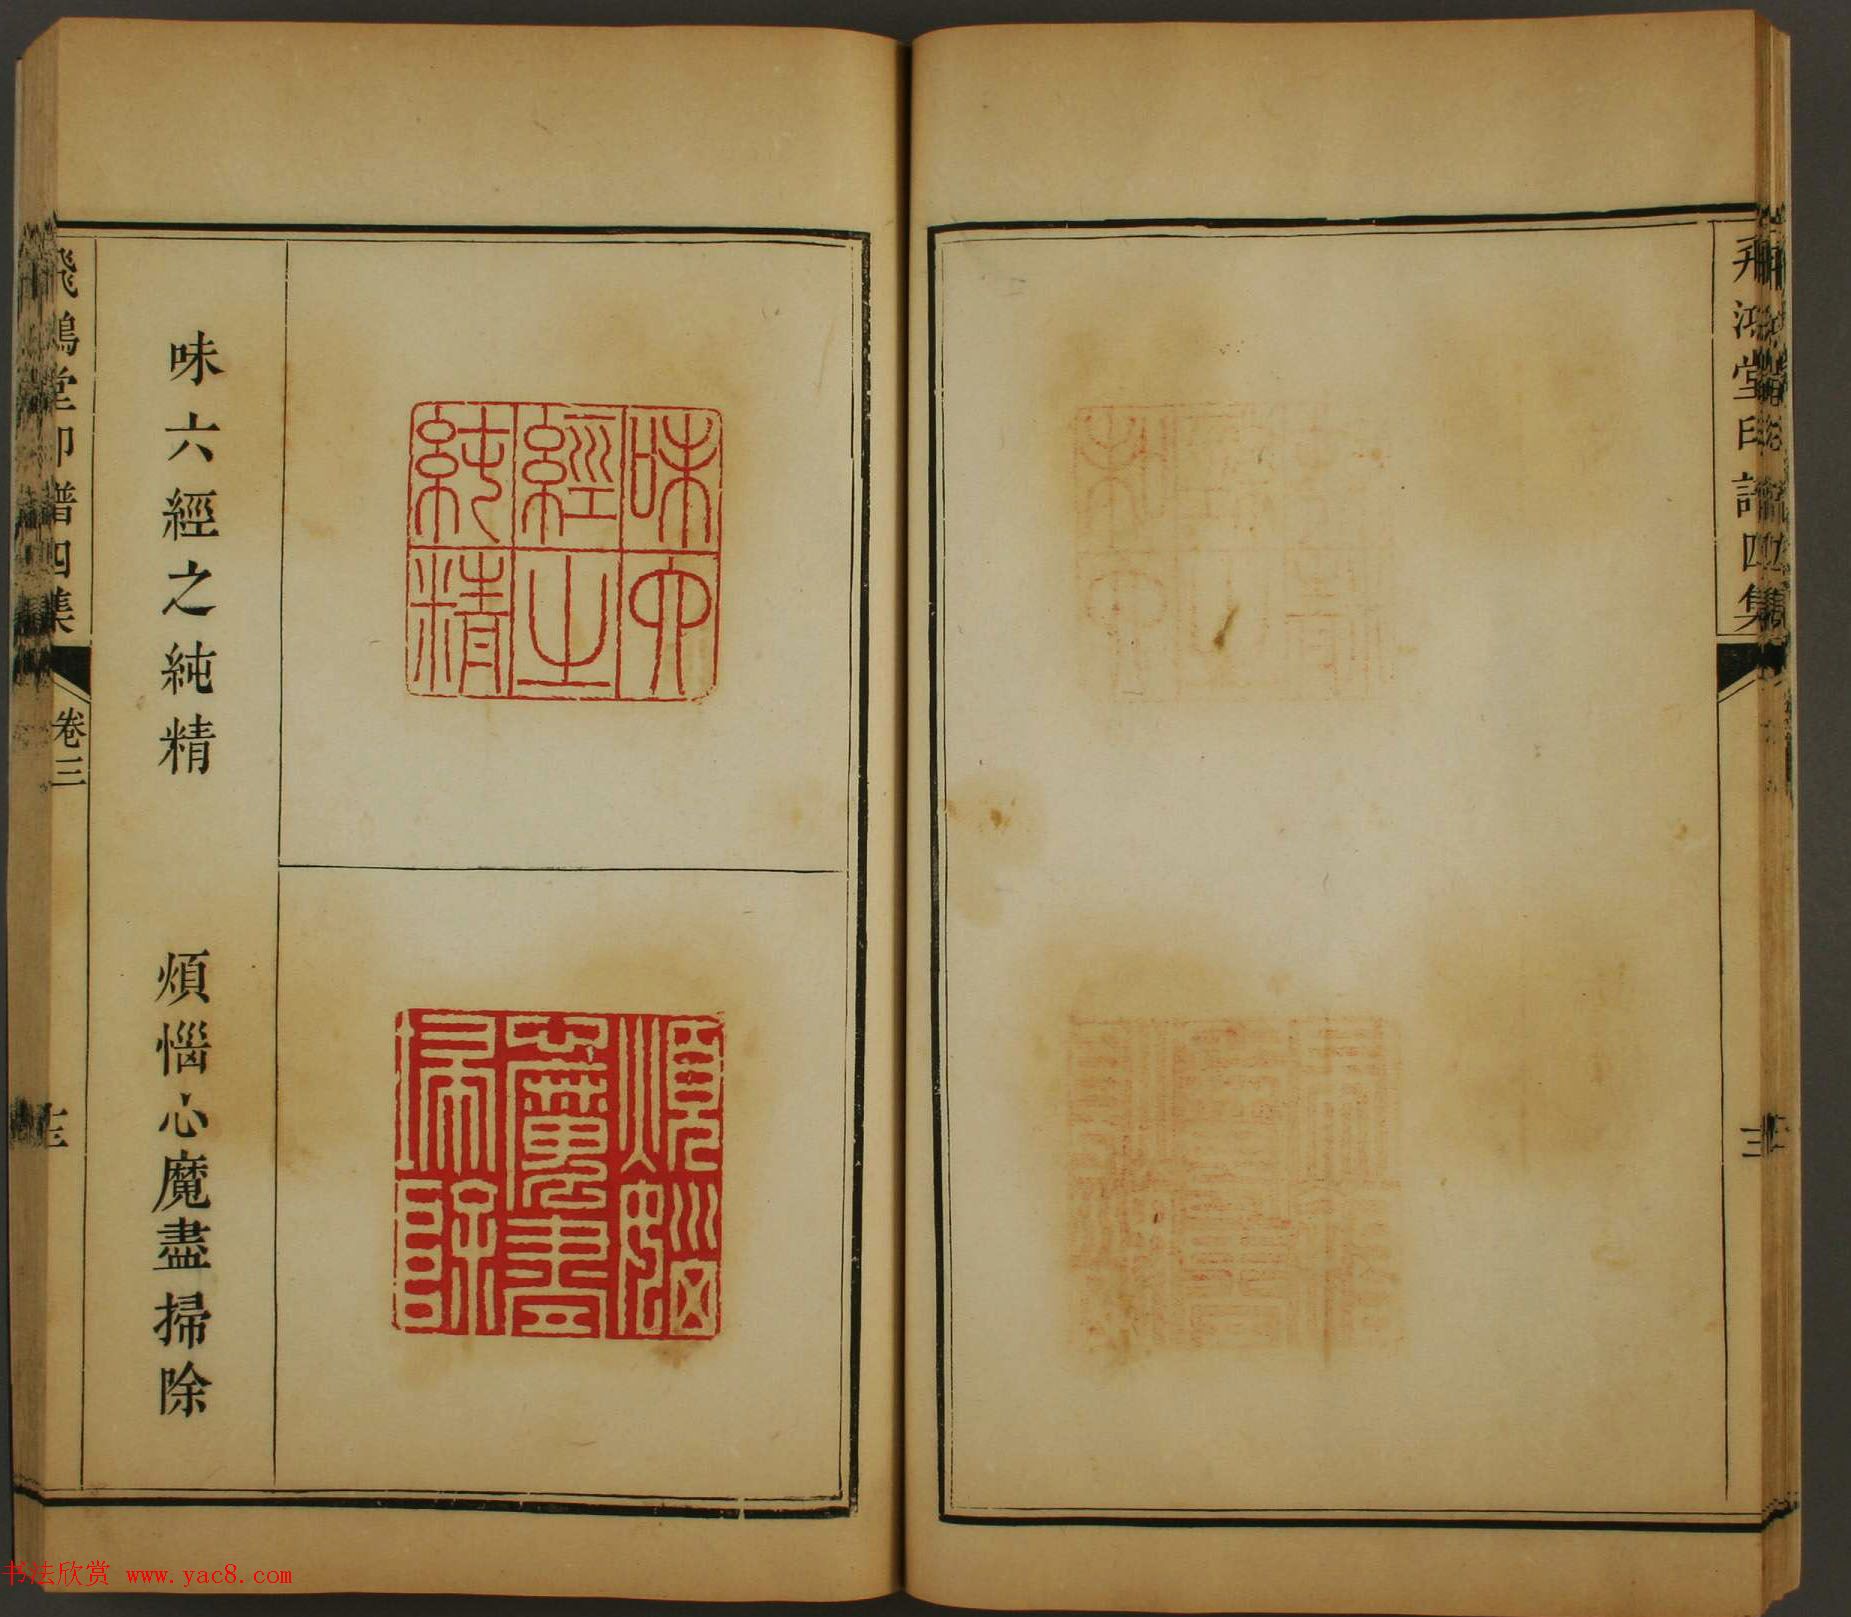 飛鴻堂印譜四集
味六經之純精
煩惱心魔盡掃除
味六經之純精
煩惱心魔盡掃除
飛鴻堂印譜四集
卷三
书法欣赏 www.yac8.com